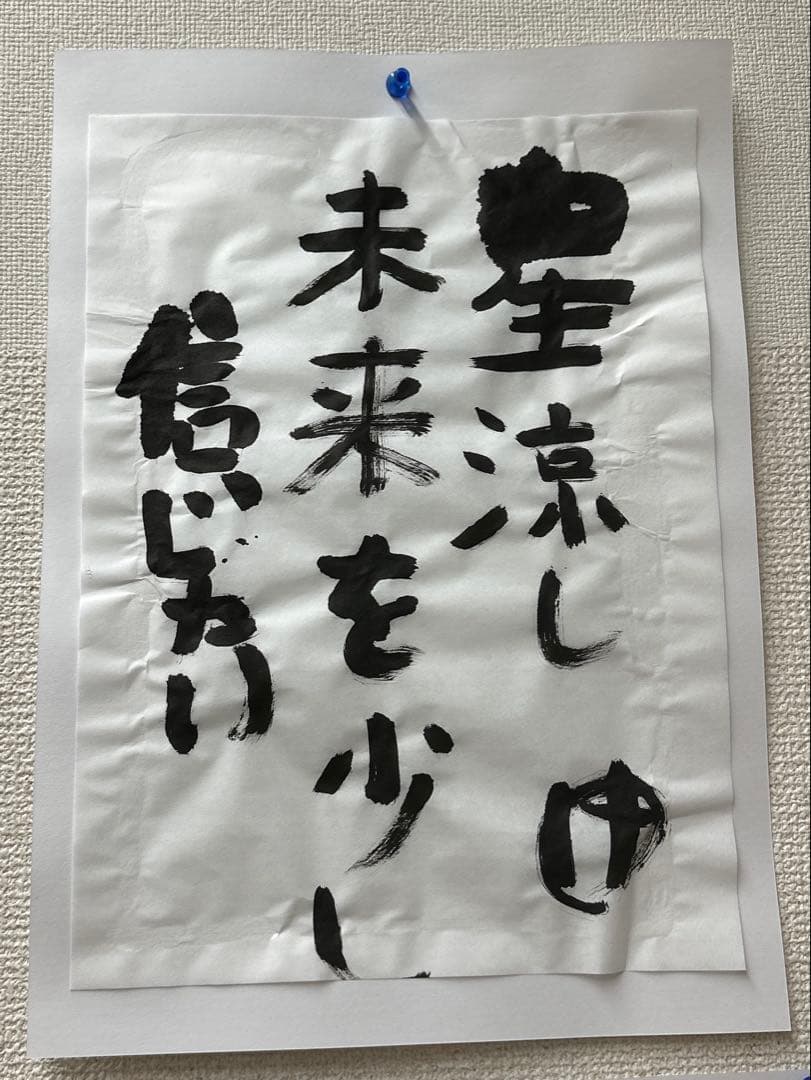 星涼し ゆ
未来を少し
信じたい